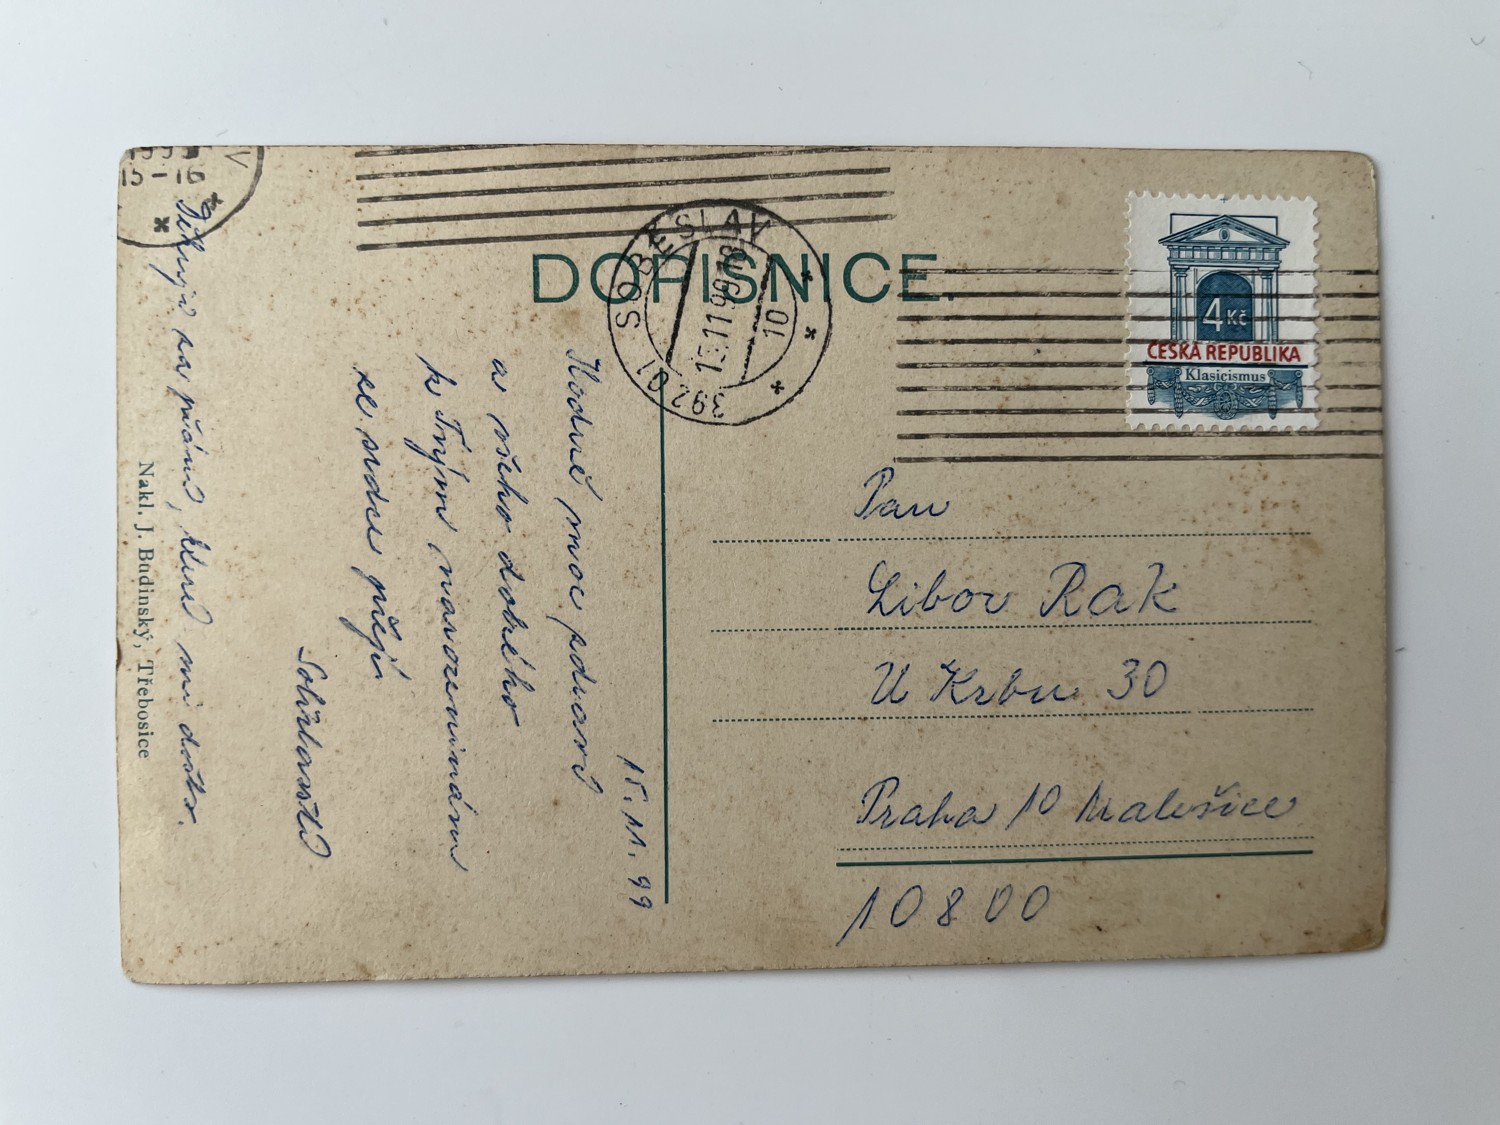 15-16
DOPISNICE.
SOBĚSLAV
15.11.99-18
10
392 01
4 Kč
ČESKÁ REPUBLIKA
Klasicismus
Hodně moc zdraví
a všeho dobrého
k Tvým narozeninám
ze srdce přejí
15.11.99
Děkuji za přání, které mi došlo.
Nakl. J. Budinský, Třebosice
Pan
Libor Rak
U Krbu 30
Praha 10 Malešice
10800